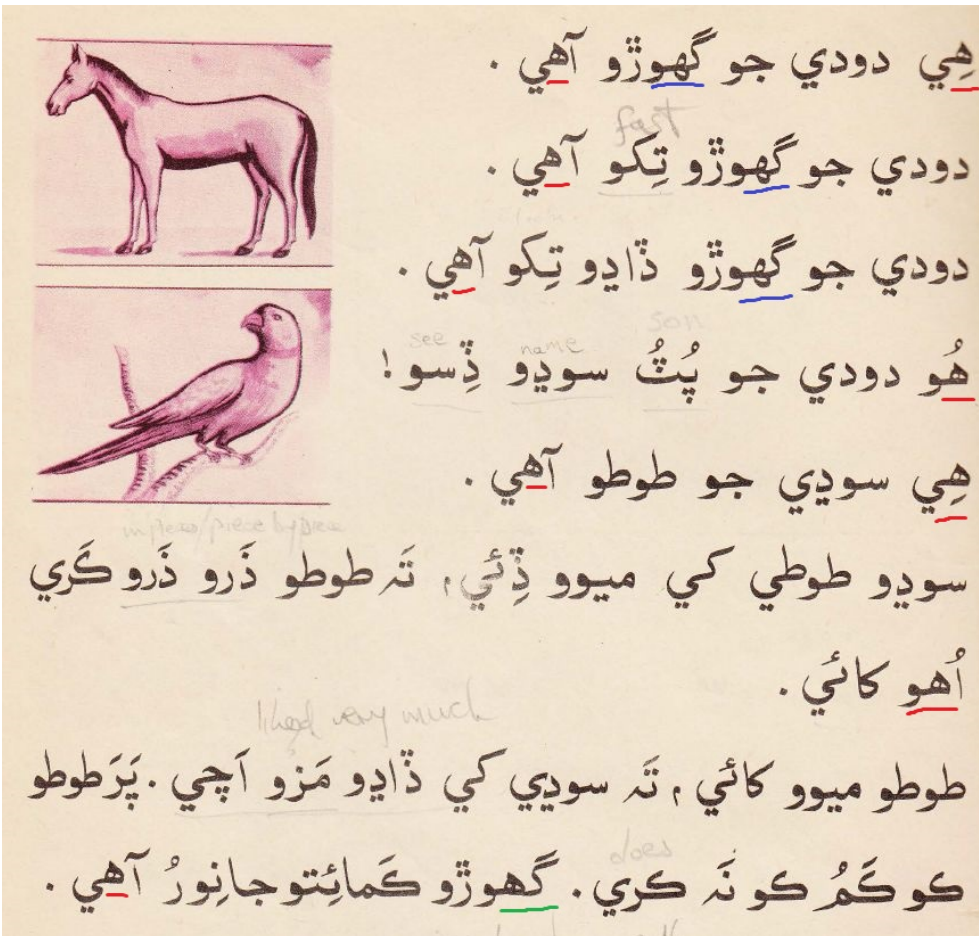 هِي دودي جو گهوڙو آهي .
fast
دودي جو گهوڙو تِکو آهي .
دودي جو گهوڙو ڏاڍو تِکو آهي .
see name son
هُو دودي جو پُٽُ سوڍو ڏِسو !
هِي سوڍي جو طوطو آهي .
in pieces/piece by piece
سوڍو طوطي کي ميوو ڏِئي، تَہ طوطو ذَرو ذَرو ڪَري
اُهو کائي .
liked very much
طوطو ميوو کائي ، تَہ سوڍي کي ڏاڍو مَزو اَچي . پَرَ طوطو
does
ڪو ڪَمُ ڪو نَہ ڪري . گهوڙو ڪَمائِتو جانِورُ آهي .